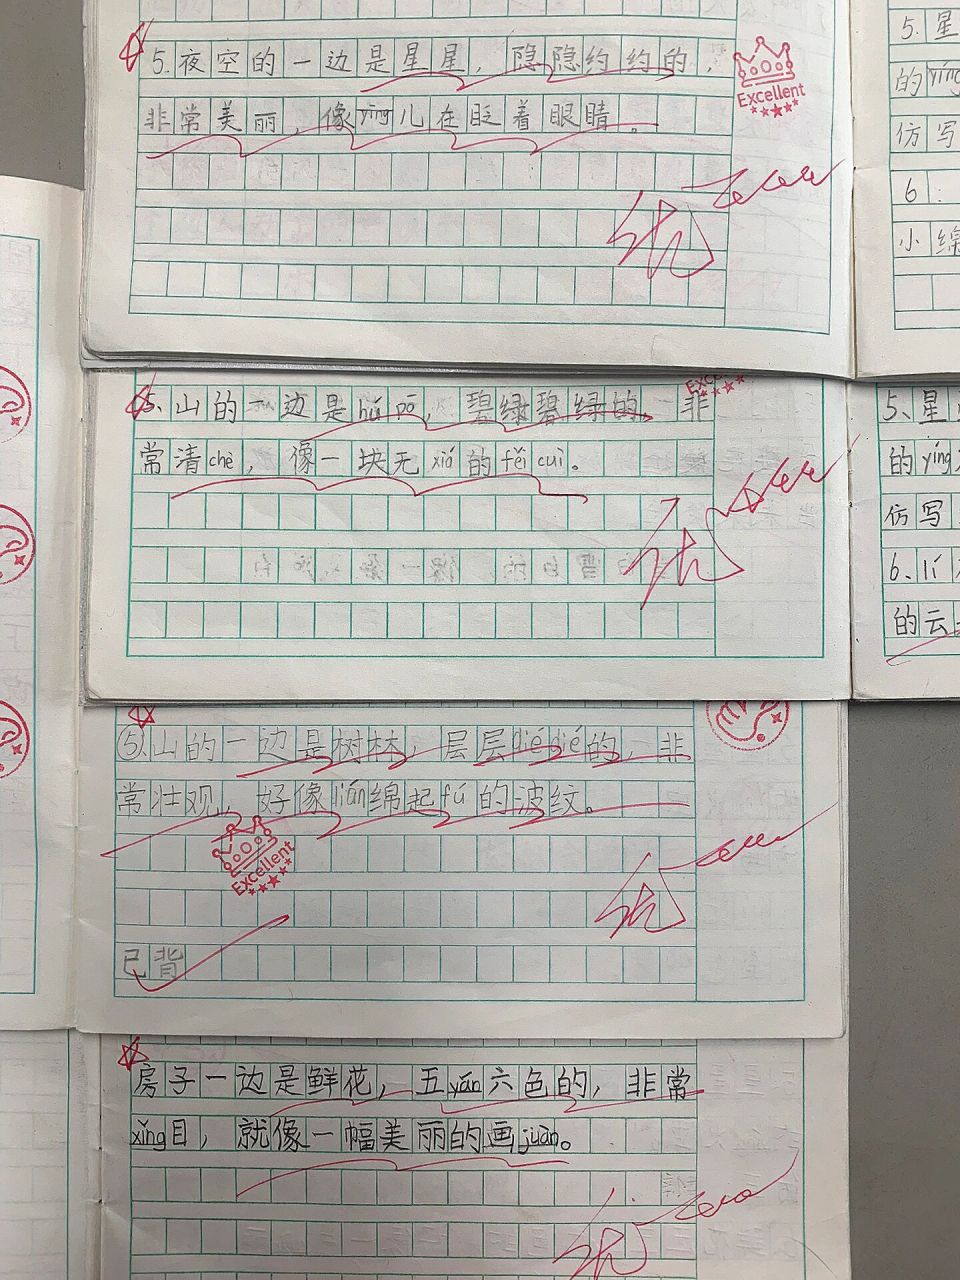 5.夜空的一边是星星，隐隐约约的，
非常美丽，像yīng儿在眨着眼睛。
Excellent
优
5.星
的yíng
仿写
6:
小绵
5.山的一边是hú pō，碧绿碧绿的，非
常清chè，像一块无xiá的fěi cuì。
优
5、星
的yíng
仿写
6、lí
的云
⑤.山的一边是树林，层层dié dié的，非
常壮观，好像lián绵起fú的波纹。
Excellent
优
已背
房子一边是鲜花，五yán六色的，非常
xǐng目，就像一幅美丽的画juàn。
优